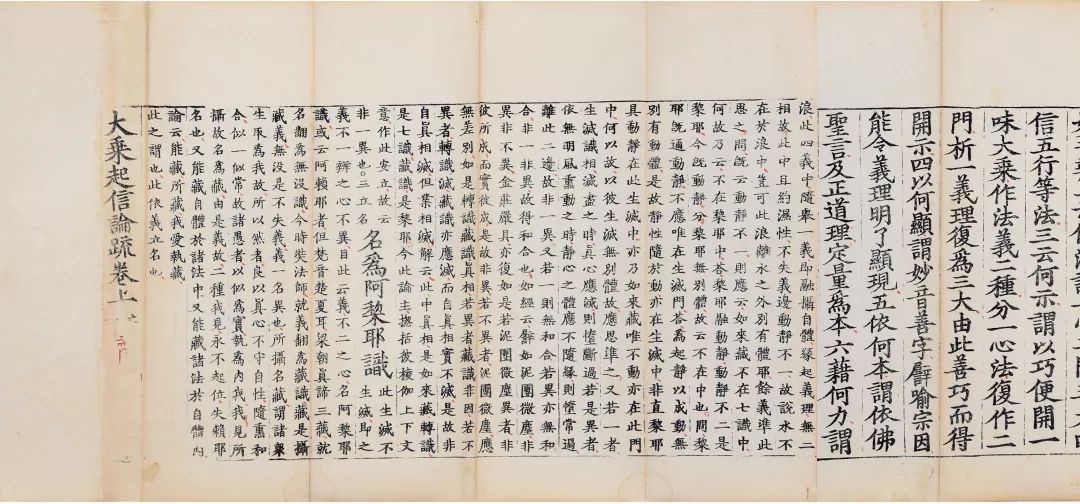 信五行等法三云何示謂以巧便開一
味大乗作法義二種分一心法復作二
門析一義理復為三大由此善巧而得
開示四以何顯謂妙音善字譬喻宗因
能令義理明了顯現五依何本謂依佛
聖言及正道理定量為本六藉何力謂
浪此四義中隨舉一義即融攝自體緣起義理無二
相故此中且約濕性不失義邊動靜不一故說水不
在於浪中豈可此浪離水之外別有體耶餘義準此
思之問既云動靜不一則應云如來藏不在七識中
何故乃云不在阿黎耶中荅黎耶融動靜動靜不二是
黎耶今既動靜分黎耶無別體故云不在中也問黎
耶既通動靜不應唯在生滅門荅為起靜以成動無
別有動體是故靜性隨於動亦在生滅中非直黎耶
具動靜在此生滅中亦乃如來藏唯不動亦在此門
中何以故以彼生滅無別體故應思準之又若一者
生滅識相滅盡之時真心應滅則墮斷過若是異者
依無明風熏動之時靜心之體應不隨緣則墮常過
離此二邊故非一異又若一則無和合若異亦無和
合非一異故得和合也如經云譬如泥團微塵非
異非不異金莊嚴具亦復如是若泥團微塵異者非
彼所成而實彼成是故非異若不異者泥團微塵應
無差別如是轉識藏識真相若異者藏識非因若不
異者轉識滅藏識亦應滅而自真相實不滅是故非
自真相滅但業相滅解云此中真相是如來藏轉識
是七識藏識是黎耶今此論主揔括彼楞伽上下文
意作此安立故云非一異也
三立名
名為阿黎耶識
此生滅不
生滅即之
義不一辨之心不異自此云義不二之心名阿黎耶
識或云阿賴耶者但梵音楚夏耳梁朝真諦三藏就
名翻為無沒識今時奘法師就義翻為藏識藏是攝
藏義無沒是不失義義一名異也所攝名藏謂諸眾
生取為我故所以然者良以真心不守自性隨熏和
合似一似常故諸愚者以似為實執為內我我見所
攝故名為藏由是義故二種我見永不起位失賴耶
名也又能藏自體於諸法中又能藏諸法於自體內
論云能藏所藏我愛執藏
此之謂也此依義立名也
大乗起信論疏卷上之